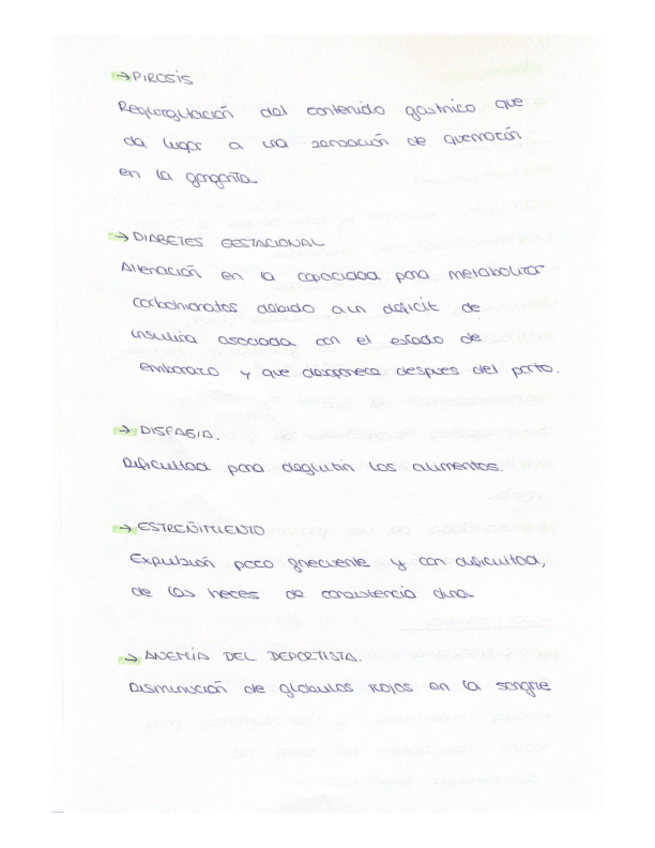 → PIROSIS
Regurgitación del contenido gástrico que
da lugar a una sensación de quemazón
en la garganta.
→ DIABETES GESTACIONAL
Alteración en la capacidad para metabolizar
carbohidratos debido a un déficit de
insulina asociada con el estado de
embarazo y que desaparece despues del parto.
→ DISFAGIA.
Dificultad para deglutir los alimentos.
→ ESTREÑIMIENTO
Expulsión poco frecuente y con dificultad,
de las heces de consistencia dura.
→ ANEMIA DEL DEPORTISTA.
Disminución de glóbulos rojos en la sangre